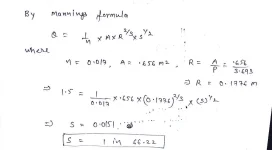 By Mannings formula
Q = 1/n × A × R^2/3 × S^1/2
where
n = 0.017, A = .656 m2, R = A/P = .656/3.693
⇒ R = 0.1776 m
⇒ 1.5 = 1/0.017 × .656 × (0.1776)^2/3 × (S)^1/2
⇒ S = 0.0151
S = 1 in 66.22